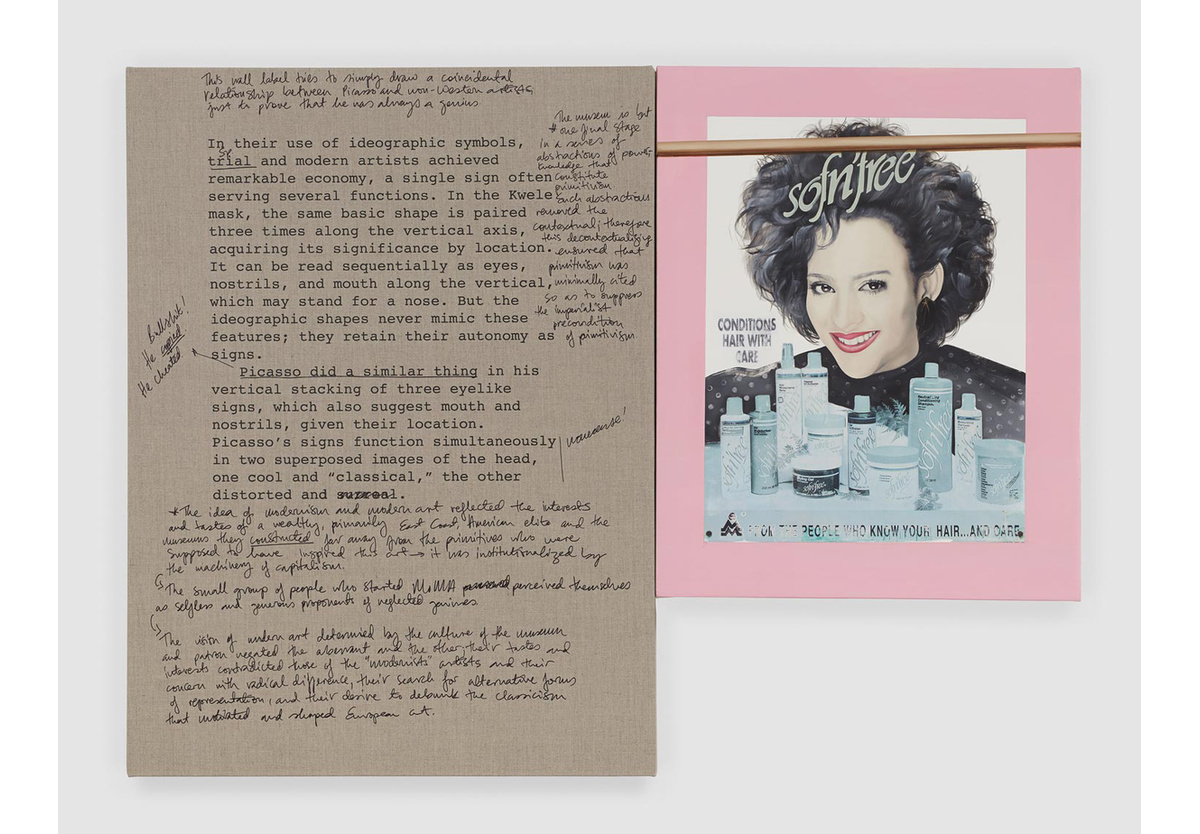 This wall label tries to simply draw a coincidental
relationship between Picasso and non-Western artists
just to prove that he was always a genius
In their use of ideographic symbols,
trial and modern artists achieved
remarkable economy, a single sign often
serving several functions. In the Kwele
mask, the same basic shape is paired
three times along the vertical axis,
acquiring its significance by location.
It can be read sequentially as eyes,
nostrils, and mouth along the vertical,
which may stand for a nose. But the
ideographic shapes never mimic these
features; they retain their autonomy as
signs.
Picasso did a similar thing in his
vertical stacking of three eyelike
signs, which also suggest mouth and
nostrils, given their location.
Picasso's signs function simultaneously
in two superposed images of the head,
one cool and “classical,” the other
distorted and surreal.
The museum is but
* one final stage
in a series of
abstractions of power-
knowledge that
constitute
primitivism
such abstractions
removed the
contextual; therefore
this decontextualizing
ensured that
primitivism was
minimally cited
so as to suppress
the imperialist
precondition
of primitivism
Bullshit!
He copied
He cheated
nonsense!
*The idea of modernism and modern art reflected the interests
and tastes of a wealthy, primarily East Coast, American elite and the
museums they constructed far away from the primitives who were
supposed to have inspired this art → it was institutionalized by
the machinery of capitalism.
The small group of people who started MoMA perceived themselves
as selfless and generous proponents of neglected geniuses
The vision of modern art determined by the culture of the museum
and patron negated the aberrant and the other; their tastes and
interests contradicted those of the "modernists" artists and their
concern with radical difference, their search for alternative forms
of representation, and their desire to debunk the classicism
that motivated and shaped European art.
sofn'free
CONDITIONS
HAIR WITH
CARE
sofn'free
M
FROM THE PEOPLE WHO KNOW YOUR HAIR...AND CARE